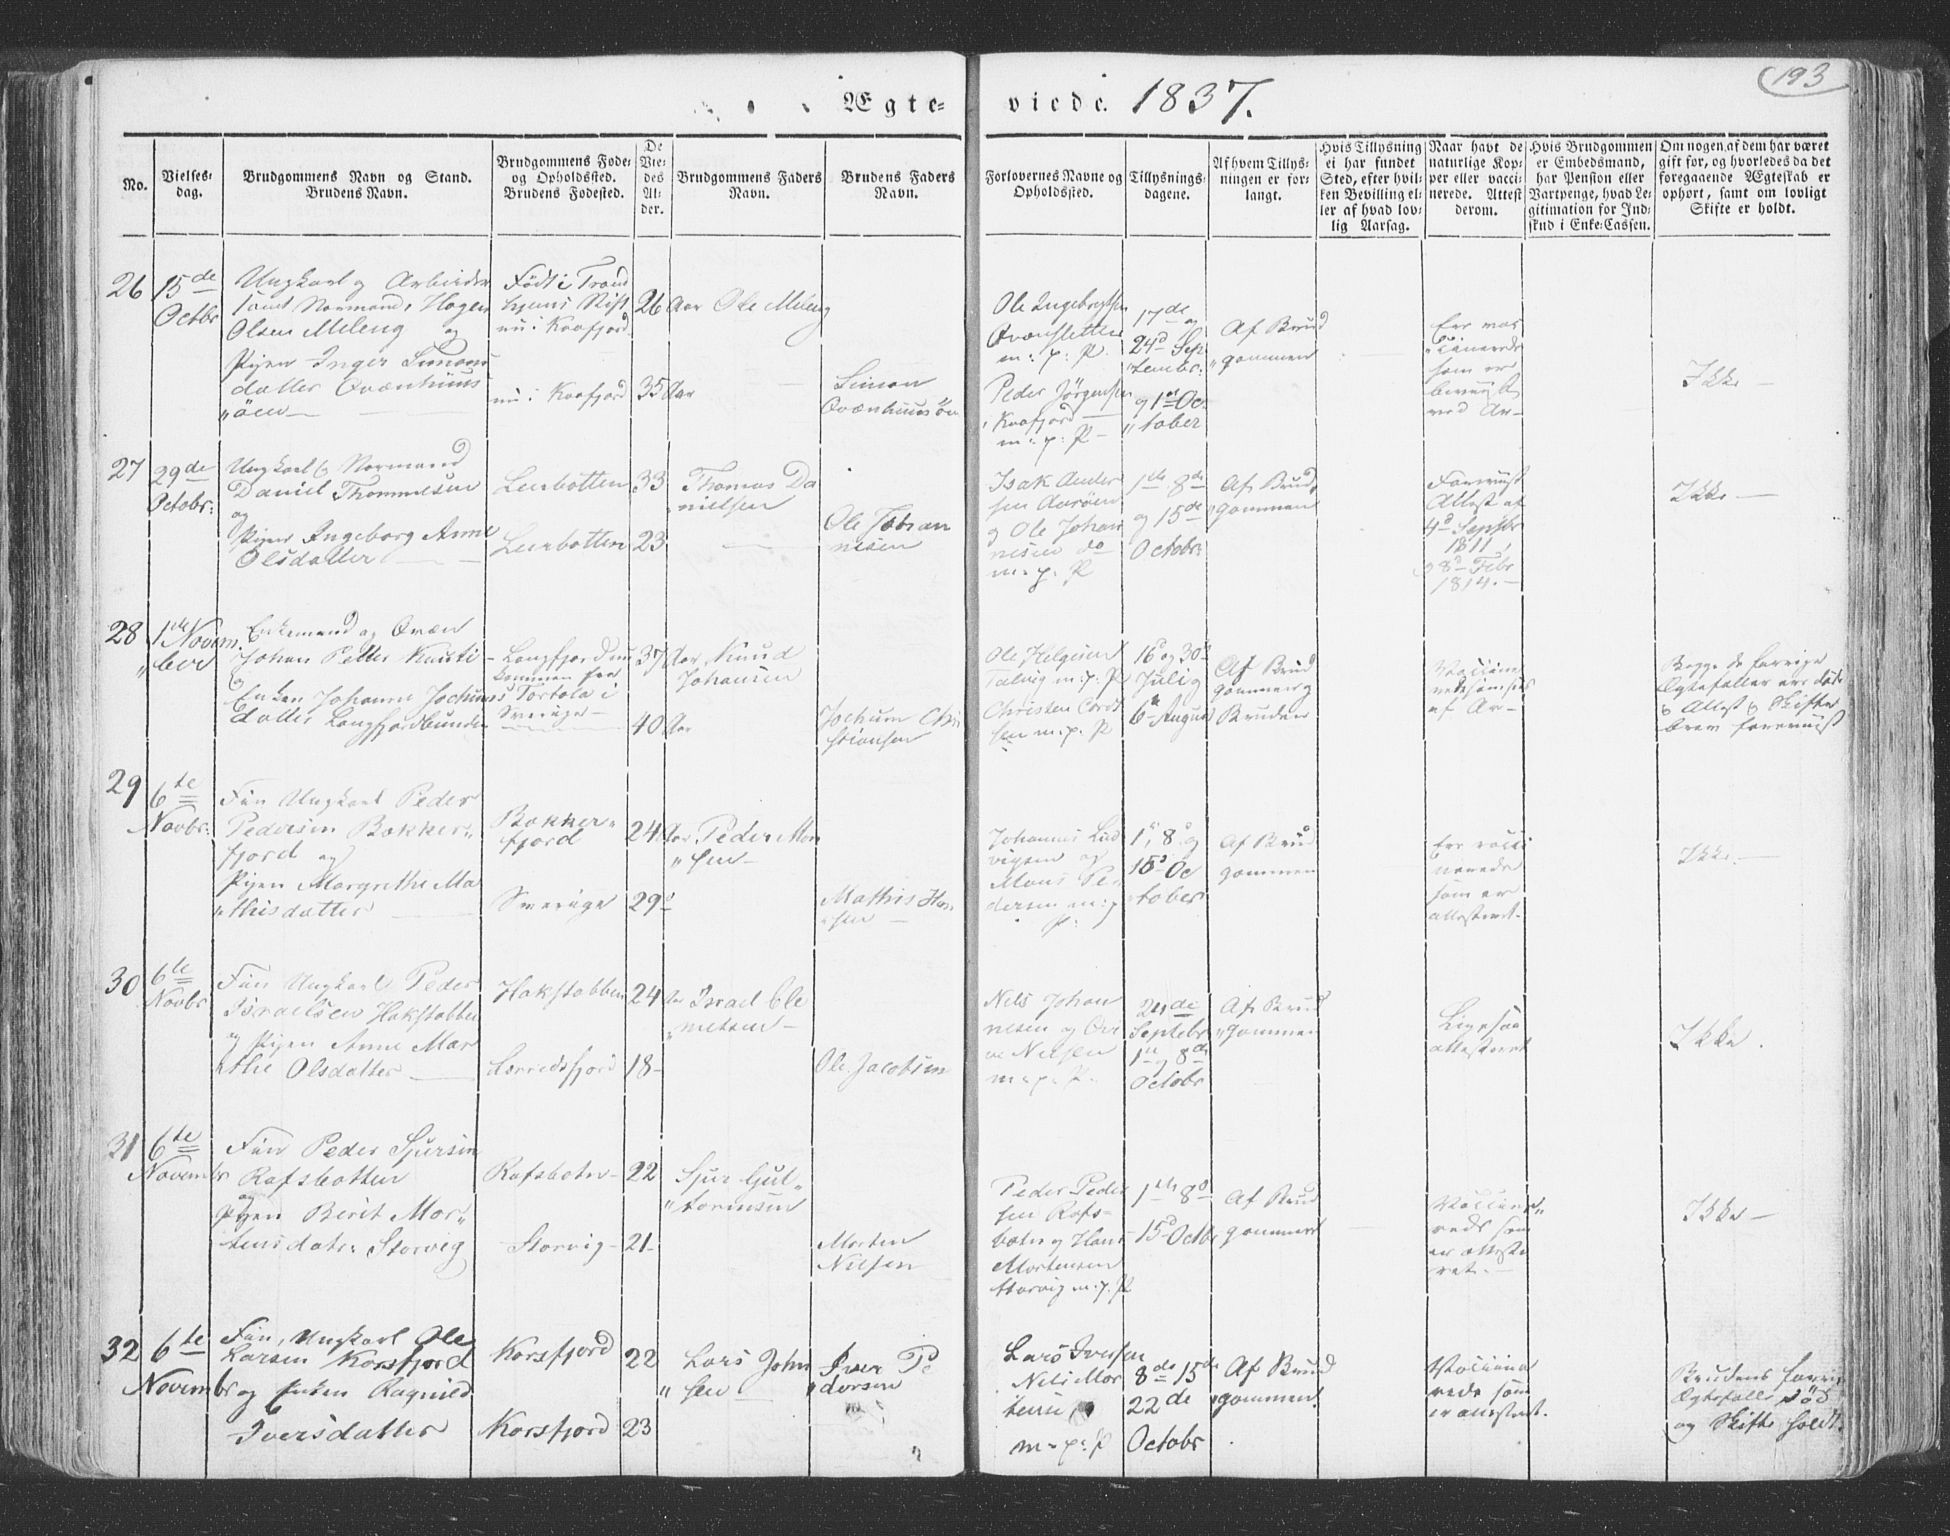 193
Ægte- viede. 1837.
No.
Vielses-
dag.
Brudgommens Navn og Stand.
Brudens Navn.
Brudgommens Føde-
og Opholdssted.
Brudens Fødested.
De
Vie-
des
Al-
der.
Brudgommens Faders
Navn.
Brudens Faders
Navn.
Forlovernes Navne og
Opholdssted.
Tillysnings-
dagene.
Af hvem Tillys-
ningen er for-
langt.
Hvis Tillysning
ei har fundet
Sted, efter hvil-
ken Bevilling el-
ler af hvad lov-
lig Aarsag.
Naar havt de
naturlige Kop-
per eller vacci-
nerede. Attest
derom.
Hvis Brudgommen
er Embedsmand,
har Pension eller
Vartpenge, hvad Le-
gitimation for Ind-
skud i Enke-Cassen.
Om nogen af dem har været
gift før, og hvorledes da det
foregaaende Ægteskab er
ophørt, samt om lovligt
Skifte er holdt.
26
15de
Octbr
Ungkarl og Arbeider
samt Normand, Hagen
Olsen Meleng og
Pigen Inger Simons
datter Qvænhuus
"øen
Født i Trond
hjems Stift
nu i Kaafjord
nu i Kaafjord
26 Aar
35 Aar
Ole Meleng
Simon
Qvænhuusøen
Ole Ingebrigtsen
Qvænsletten
m: p: P.
Peder Jørgensen
i Kaafjord
m: p: P
17de og
24d Sep
"tembr:
og 1ste Oc
"tober
Af Brud
"gommen
Ere vac
"cinerede
som er
beviist
ved At-
Ikke
27
29de
Octobr:
Ungkarl og Normand
Daniel Thommesen
og
Pigen Ingeborg Anne
Olsdatter
Leerbotten
Leerbotten
33
23
Thomas Da
nielsen
Ole Johan
nesen
Isak Ander
sen Aarøen
og Ole Johan
nesen do
m. p. P
1ste 8de
og 15de
Octobr:
Af Brud
"gommen
Foreviist
Attest af
4d Septbr
1811,
og 8d Febr
1814.
Ikke
28
1ste Novem
"ber
Enkemand og Qvæn
Johan Petter Knuti
og
Enken Johanne Jochums
datter Langfjordbunden
Langfjord nu
kommen fra
Tortola i
Sverige
37 Aar
40 Aar
Knud
Johansen
Jochum Chri
stiansen
Ole Helgesen
Talvig m: p: P
Christen Cord
sen m: p: P
16d og 30d
Juli og
6te August
Af Brud
gommen og
Bruden
Vaccine
rede som sees
af At-
Begge de forrige
Ægtefæller ere døde
og Attest og Skifte
brev foreviist
29
6te
Novbr:
Fin Ungkarl Peder
Pedersen Bokker"
fjord og
Pigen Margrethe Ma
"thisdatter
Bokker"
fjord
Sverige
24 Aar
29d
Peder Mon
"sen
Mathis Han
"sen
Johannes Lud
vigsen og
Mons Pe
dersen m: p
P:
1d, 8d og
15d Oc
tober
Af Brud
gommen
Ere vacci
nerede
som er
attesteret.
Ikke.
30
6te
Novbr
Fin Ungkarl Peder
Israelsen Hakstabben
og Pigen Anne Mar
"the Olsdatter
Hakstabben
Lerredsfjord
24 Aar
18
Israel Cle
"metsen
Ole Jacobsen
Nils Johan
nesen og
Nilsen
m: p: P.
24de
Septebr
1ste og 8de
Octobr
Af Brud
"gommen
Ligesaa
attesteret
Ikke.
31
6te
Novembr
Fin Peder Sjursen
Rafsbotten
og
Pigen Berit Mor"
tensdatr: Storvig
Rafsboten
Storvig
22
21
Sjur Gul"
"tormsen
Morten
Nilsen
Peder Peder
sen Rafs-
boten og Hans
Mortensen
Storvig m: p. P
1ste 8d
15d Octbr
Af Brud
gommen
Vaccine"
rede som
er atteste
ret.
Ikke
32
6te
Novembr
Fin, Ungkarl Ole
Larsen Korsfjord
og Enken Ragnild
Iversdatter
Korsfjord
Korsfjord
22
23
Lars John
"sen
Iver Pe
"dersen
Lars Iversen
Nils Mor
tensen
m: p: P
8de 15de
22de
Octobr
Af Brud
"gommen.
Vaccine
rede som
er attesteret.
Brudens forrige
Ægtefælle død
og Skifte holdt.